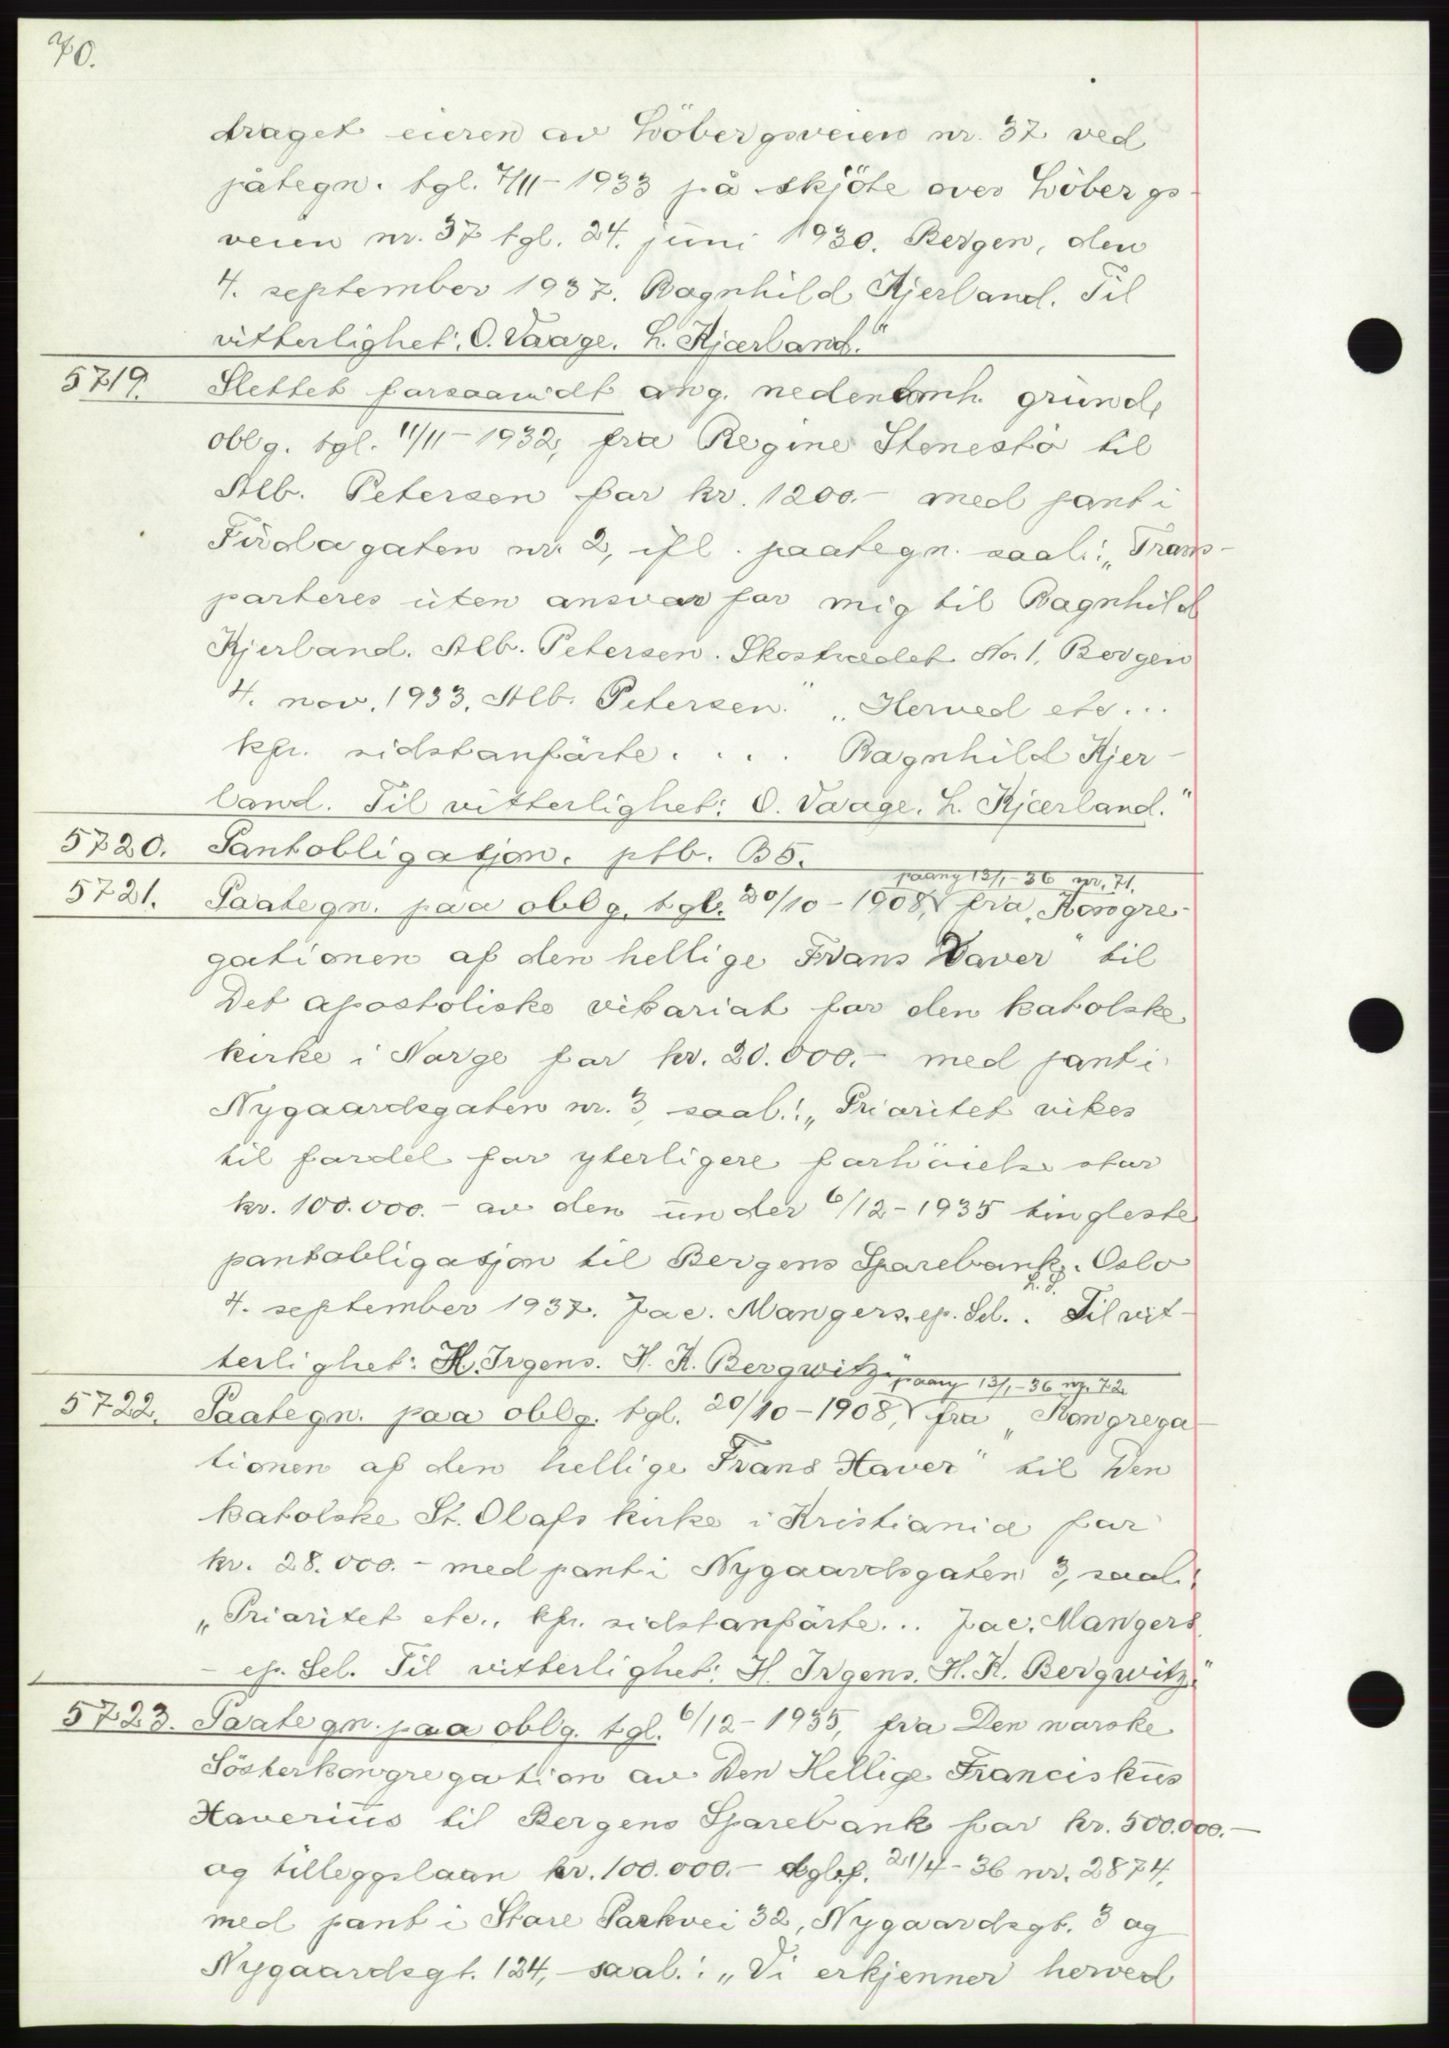 70.
draget eieren av Löbergsveien nr. 37 ved
påtegn. tgl. 7/11-1933 på skjöte over Löbergs-
veien nr. 37 tgl. 24. juni 1930. Bergen, den
4. september 1937. Ragnhild Kjerland. Til
vitterlighet: O. Vaage. L. Kjærland."
5719. Slettet forsaavidt ang. nedenomh. grund,
oblg. tgl. 11/11-1932, fra Regine Stenestö til
Alb. Petersen for kr. 1200.- med pant i
Firdagaten nr. 2, ifl. paategn. saal.: „Trans-
porteres uten ansvar for mig til Ragnhild
Kjerland. Alb. Petersen. Skostrædet No. 1, Bergen
4. nov. 1933. Alb. Petersen." „Herved etc...
kfr. sidstanförte.... Ragnhild Kjer-
land. Til vitterlighet: O. Vaage. L. Kjærland."
5720. Pantobligasjon. ptb. B5.
paany 13/1-36 nr. 71.
5721. Paategn. paa oblg. tgl. 20/10-1908, fra „Kongre-
gationen af den hellige Frans Xaver" til
Det apostoliske vikariat for den katolske
kirke i Norge for kr. 20.000.- med pant i
Nygaardsgaten nr. 3, saal.: „Prioritet vikes
til fordel for yterligere forhöielse stor
kr. 100.000.- av den under 6/12-1935 tingleste
pantobligasjon til Bergens Sparebank. Oslo
4. september 1937. Jac. Mangers. ep. Sel. L.S. Til vit-
terlighet: H. Irgens. H. K. Bergwitz."
paany 13/1-36 nr. 72.
5722. Paategn. paa oblg. tgl. 20/10-1908, fra „Kongrega-
tionen af den hellige Frans Xaver" til Den
katolske St. Olafs kirke i Kristiania for
kr. 28.000.- med pant i Nygaardsgaten 3, saal.:
„Prioritet etc.. kfr. sidstanförte... Jac. Mangers
- ep. Sel. Til vitterlighet: H. Irgens. H. K. Bergwitz."
5723. Paategn. paa oblg. tgl. 6/12-1935, fra Den norske
Sösterkongregation av Den Hellige Franciskus
Xaverius til Bergens Sparebank for kr. 500.000.-
og tilleggslaan kr. 100.000.- 21/4-36 nr. 2874,
med pant i Store Parkvei 32, Nygaardsgt. 3 og
Nygaardsgt. 124, saal.: „Vi erkjenner herved